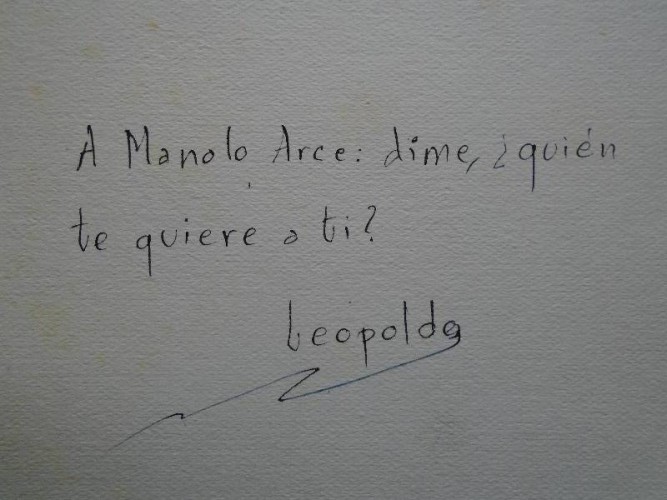 A Manolo Arce: dime, ¿quién
te quiere a ti?
Leopoldo